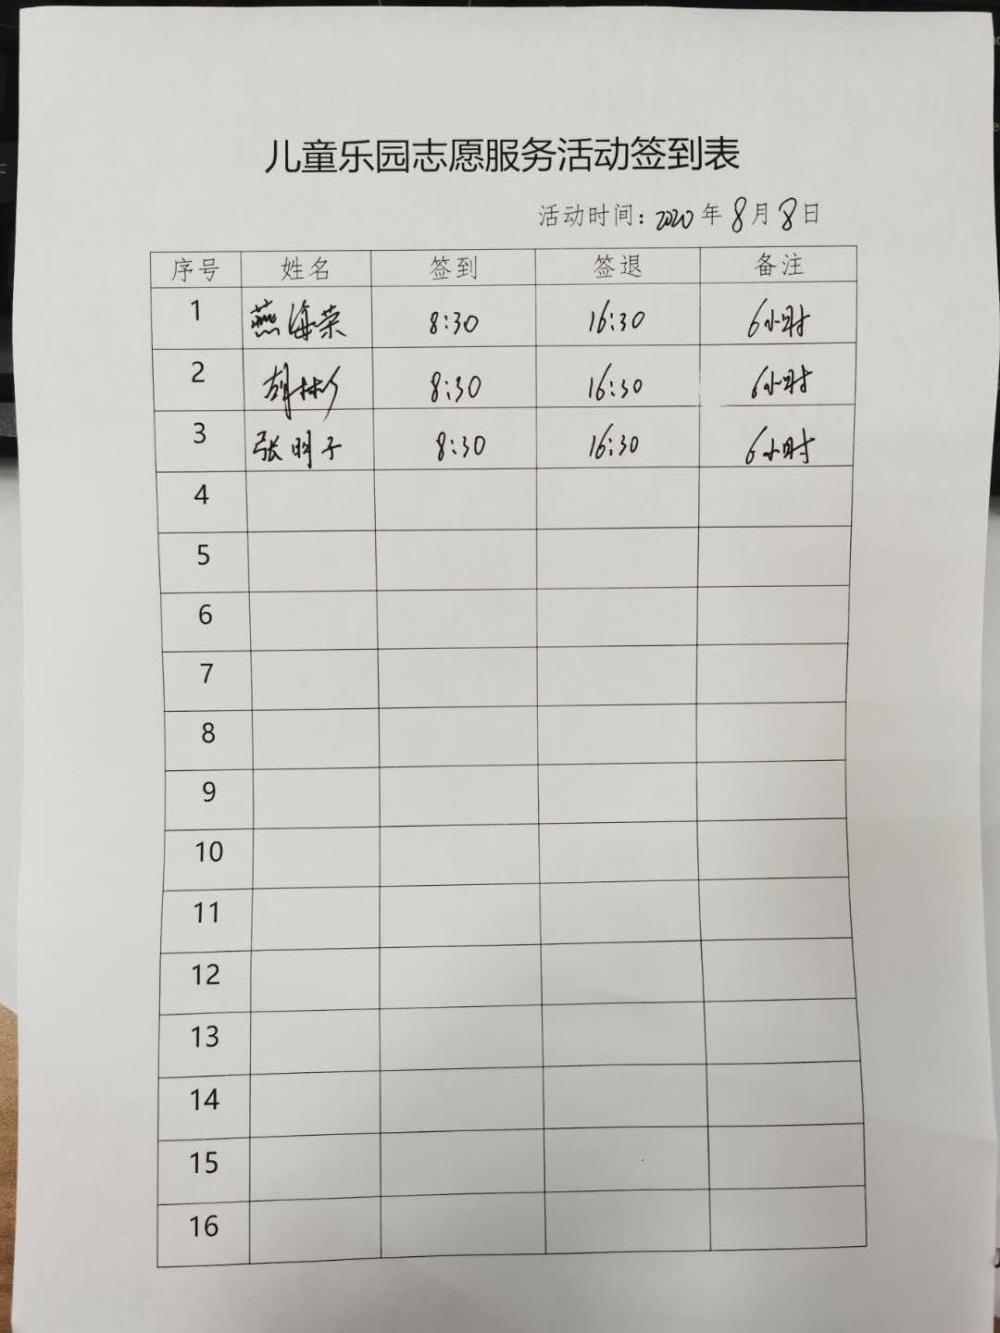 儿童乐园志愿服务活动签到表
活动时间：2020年8月8日
序号 姓名 签到 签退 备注
1 燕海荣 8:30 16:30 6小时
2 胡彬 8:30 16:30 6小时
3 张明子 8:30 16:30 6小时
4
5
6
7
8
9
10
11
12
13
14
15
16